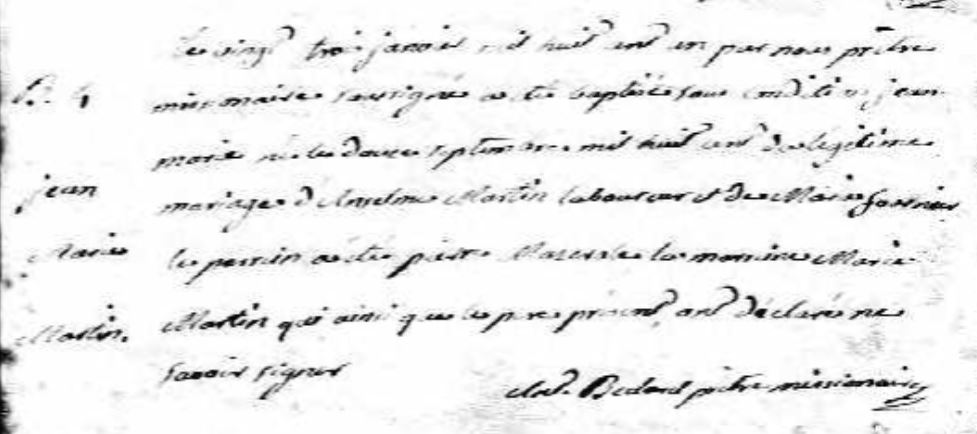 Le vingt trois janvier mil huit cent un par nous prêtre
B. 4
missionaire soussigné a été baptisé sous condition jean
marie né le douze septembre mil huit cent du légitime
jean
mariage d'Anselme Martin laboureur et de Marie fournier
Marie
le parrain a été pierre la marraine Marie
Martin.
Martin qui ainsi que le pere présent ont déclaré ne
savoir signer
Bedard prêtre missionaire